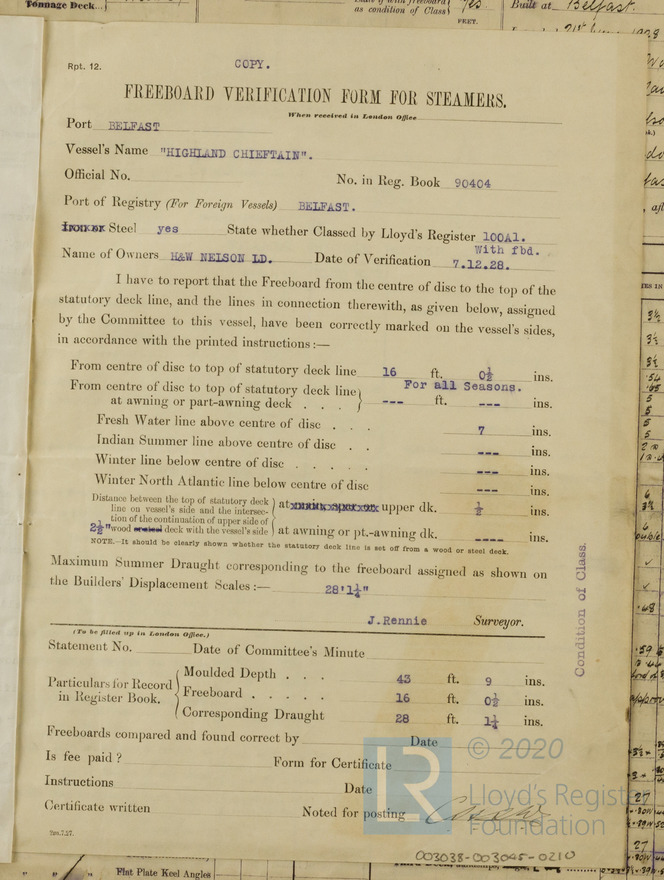 Tonnage Deck
as condition of Class
Yes
FEET.
Built at Belfast.
Rpt. 12.
COPY.
FREEBOARD VERIFICATION FORM FOR STEAMERS.
When received in London Office
Port BELFAST
Vessel's Name "HIGHLAND CHIEFTAIN".
Official No. No. in Reg. Book 90404
Port of Registry (For Foreign Vessels) BELFAST.
Steel yes State whether Classed by Lloyd's Register 100A1.
With fbd.
Name of Owners H&W NELSON LD. Date of Verification 7.12.28.
I have to report that the Freeboard from the centre of disc to the top of the
statutory deck line, and the lines in connection therewith, as given below, assigned
by the Committee to this vessel, have been correctly marked on the vessel's sides,
in accordance with the printed instructions:—
From centre of disc to top of statutory deck line 16 ft. 0½ ins.
For all Seasons.
From centre of disc to top of statutory deck line
at awning or part-awning deck . . . --- ft. --- ins.
Fresh Water line above centre of disc . . . 7 ins.
Indian Summer line above centre of disc . . --- ins.
Winter line below centre of disc . . . . . --- ins.
Winter North Atlantic line below centre of disc --- ins.
Distance between the top of statutory deck
line on vessel's side and the intersec-
tion of the continuation of upper side of
2½" wood deck with the vessel's side
at upper dk. ½ ins.
at awning or pt.-awning dk. ---- ins.
NOTE.—It should be clearly shown whether the statutory deck line is set off from a wood or steel deck.
Maximum Summer Draught corresponding to the freeboard assigned as shown on
the Builders' Displacement Scales :— 28'1¼"
J.Rennie Surveyor.
Condition of Class.
(To be filled up in London Office.)
Statement No. Date of Committee's Minute
Particulars for Record
in Register Book.
Moulded Depth . . . 43 ft. 9 ins.
Freeboard . . . . . 16 ft. 0½ ins.
Corresponding Draught 28 ft. 1¼ ins.
Freeboards compared and found correct by Date
Is fee paid ? Form for Certificate
Instructions Date
Certificate written Noted for posting
© 2020
LR
Lloyd's Register
Foundation
003038-003045-0210
Flat Plate Keel Angles